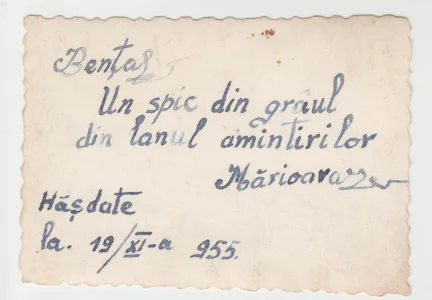 Bențaș
Un spic din graul
din lanul amintirilor
Mărioara
Hășdate
la. 19/XI-a 955.